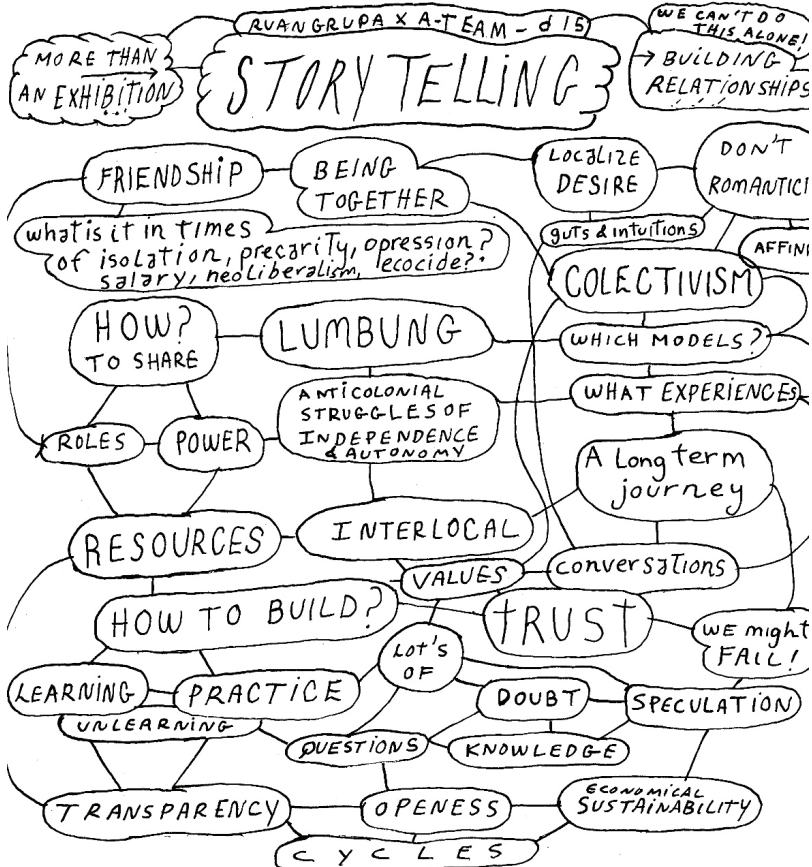 RUANGRUPA X A-TEAM - d15
WE CAN'T DO
THIS ALONE!
MORE THAN
AN EXHIBITION
STORY TELLING
→ BUILDING
RELATIONSHIPS
FRIENDSHIP
BEING
TOGETHER
LOCALIZE
DESIRE
DON'T
ROMANTICI
what is it in times
of isolation, precarity, opression?
salary, neoliberalism, ecocide?
guts & intuitions
AFFIN
COLECTIVISM
HOW?
TO SHARE
LUMBUNG
WHICH MODELS?
WHAT EXPERIENCES
ANTICOLONIAL
STRUGGLES OF
INDEPENDENCE
& AUTONOMY
ROLES
POWER
A Long term
journey
RESOURCES
INTERLOCAL
VALUES
conversations
HOW TO BUILD?
tRUST
WE might
FAIL!
LOT'S
OF
LEARNING
PRACTICE
DOUBT
SPECULATION
UNLEARNING
QUESTIONS
KNOWLEDGE
TRANSPARENCY
OPENESS
ECONOMICAL
SUSTAINABILITY
CYCLES